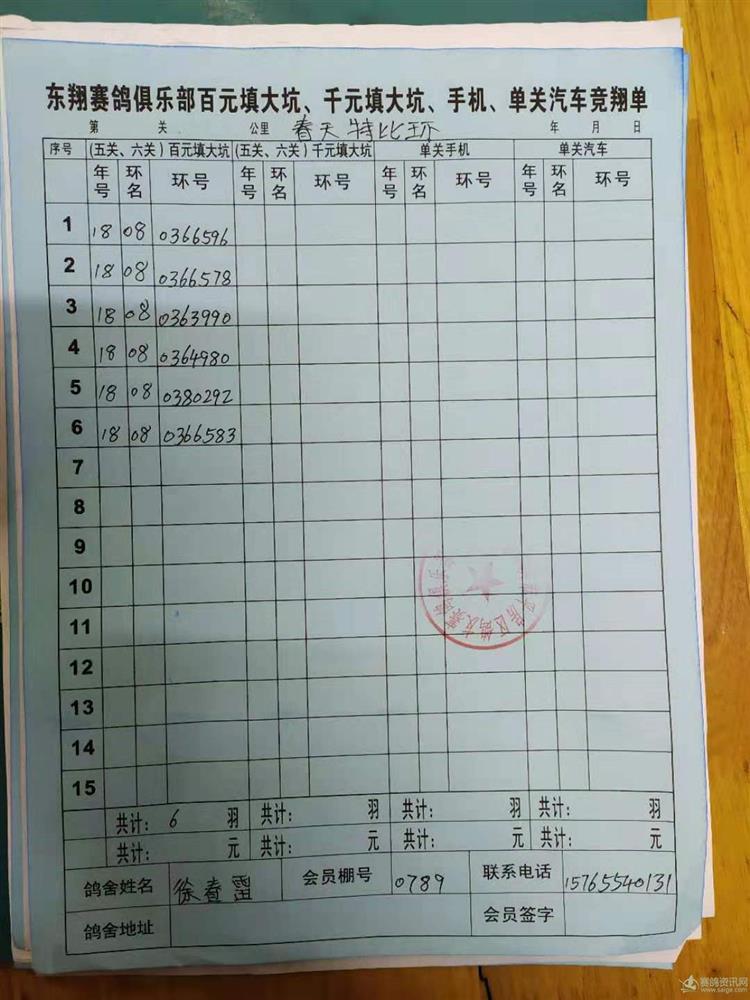 东翔赛鸽俱乐部百元填大坑、千元填大坑、手机、单关汽车竞翔单
第 关 公里 春天特比环 年 月 日
序号 (五关、六关)百元填大坑 (五关、六关)千元填大坑 单关手机 单关汽车
年号 环名 环号 年号 环名 环号 年号 环名 环号 年号 环名 环号
1 18 08 0366596
2 18 08 0366578
3 18 08 0363990
4 18 08 0364980
5 18 08 0380292
6 18 08 0366583
7
8
9
10
11
12
13
14
15
共计: 6 羽 共计: 羽 共计: 羽 共计: 羽
共计: 元 共计: 元 共计: 元 共计: 元
鸽舍姓名 徐春雷 会员棚号 0789 联系电话 15765540131
鸽舍地址 会员签字
赛鸽资讯网
www.saige.com